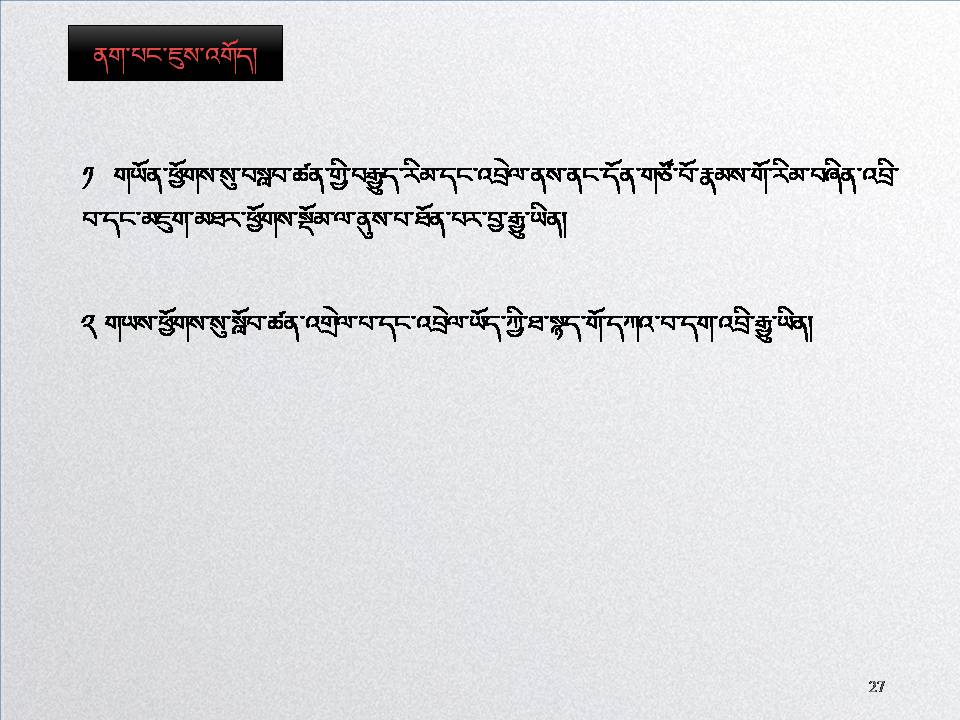 ནག་པང་ཇུས་འགོད།
༡ གཡོན་ཕྱོགས་སུ་བསླབ་ཚན་གྱི་བརྒྱུད་རིམ་དང་འབྲེལ་ནས་ནང་དོན་གཙོ་བོ་རྣམས་གོ་རིམ་བཞིན་འབྲི་
བ་དང་མཇུག་མཐར་ཕྱོགས་སྡོམ་ལ་ནུས་པ་ཐོན་པར་བྱ་རྒྱུ་ཡིན།
༢ གཡས་ཕྱོགས་སུ་སློབ་ཚན་འགྲེལ་པ་དང་འབྲེལ་ཡོད་ཀྱི་ཐ་སྙད་གོ་དཀའ་བ་དག་འབྲི་རྒྱུ་ཡིན།
27